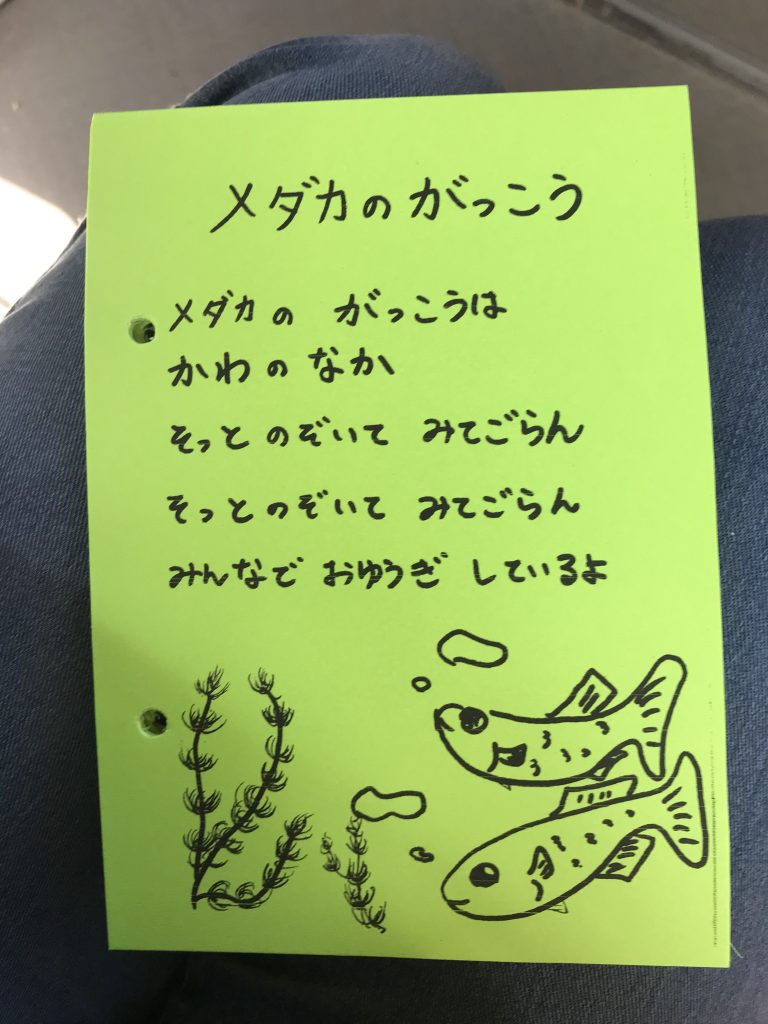 メダカのがっこう
メダカの がっこうは
かわの なか
そっと のぞいて みてごらん
そっとのぞいて みてごらん
みんなで おゆうぎ しているよ